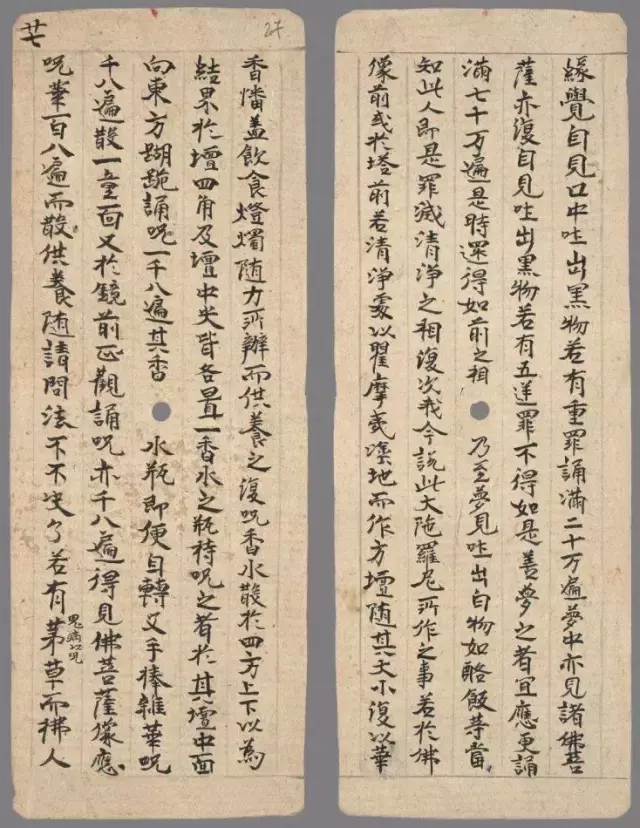 緣覺自見口中吐出黑物若有重罪誦滿二十万遍夢中亦見諸佛菩
薩亦復自見吐出黑物若有五逆罪不得如是善夢之者宜應更誦
滿七千万遍是時還得如前之相乃至夢見吐出白物如酪飯等當
知此人即是罪滅清淨之相復次我今說此大陁羅尼所作之事若於佛
像前或於塔前若清淨處以瞿摩夷塗地而作方壇隨其大小復以華
廿七
27
香幡盖飲食燈燭随力所辦而供養之復呪香水散於四方上下以為
結界於壇四角及壇中央皆各置一香水之瓶持呪之者於其壇中面
向東方䠒跪誦呪一千八遍其香水瓶即便自轉叉手捧雜華呪
千八遍散一童面又於鏡前正觀誦呪亦千八遍得見佛菩薩像應
呪華一百八遍而散供養随請問法不不決了若有茅草而拂人
鬼病以呪